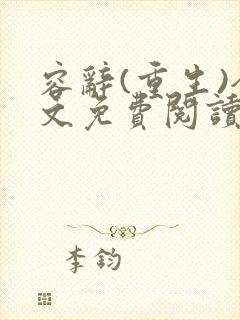 容辭(重生)
文免費閱讀
李鈞